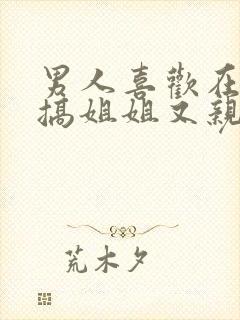 男人喜歡在
搞姐姐又親
荒木夕